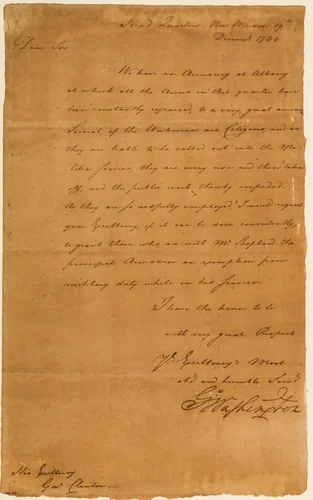 Head Quarters New Windsor 19th
Decemr 1780
Dear Sir
We have an Armoury at Albany
at which all the Arms in this quarter have
been constantly repaired, to a very great amount.
Several of the Workmen are Citizens, and as
they are liable to be called out into the Mi-
litia service, they are every now and then taken
off, and the public work thereby impeded.
As they are so usefully employed, I would request
your Excellency, if it can be done consistently,
to grant those who are with Mr Shepherd the
principal Armourer an exemption from
military duty while in his Service.
I have the honor to be
with very great Respect
Yr Excellency's Most
obt and humble Servt
Go Washington
His Excellency
Govr Clinton